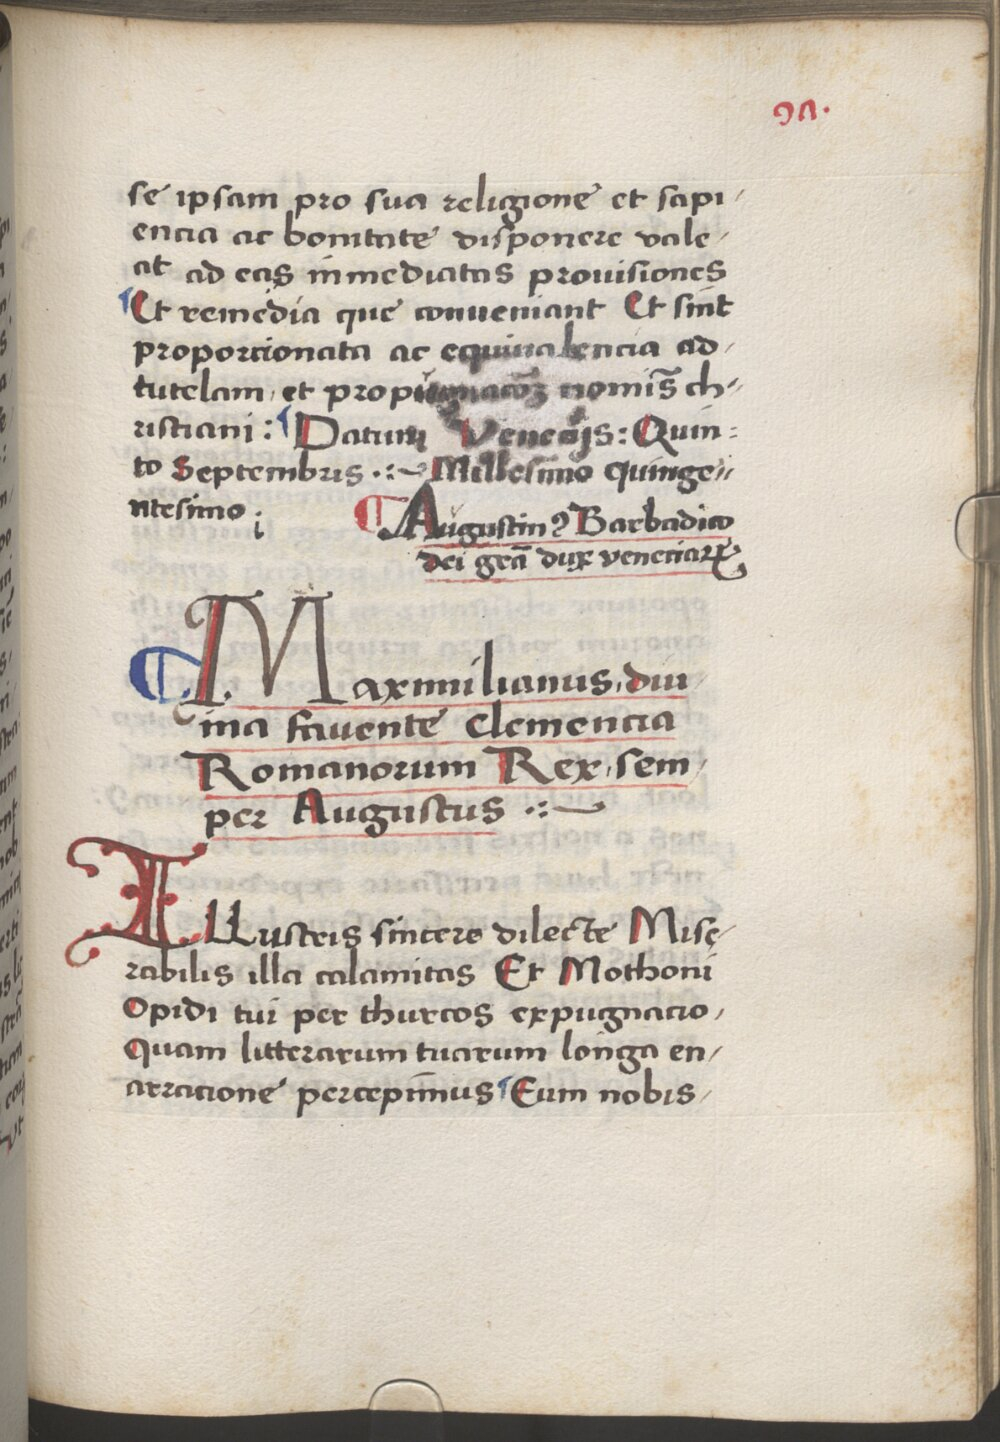 97.
se ipsam pro sua religione et sapi/
encia ac bonitate disponere vale/
at ad eas inmediatas provisiones
Et remedia que conveniant Et sint
proporcionata ac equivalencia ad/
tutelam et propugnacoꝝ nomis̄ ch/
ristiani: Datum Venecijs: Quin:
to Septembris .:~ Millesimo quinge//
ntesimo ;
Augustinꝰ Barbadico
dei grā dux veneciaꝝ
Maximilianus, diui/
ina favente Clemencia
Romanorum Rex, sem/
per Augustus .:~
Illustris sincere dilecte Mise/
rabilis illa calamitas Et Mothoni
Opidi tui per thurcos expugnacio,
Quam litterarum tuarum longa en/
arracione percepim̄us Eum nobis/